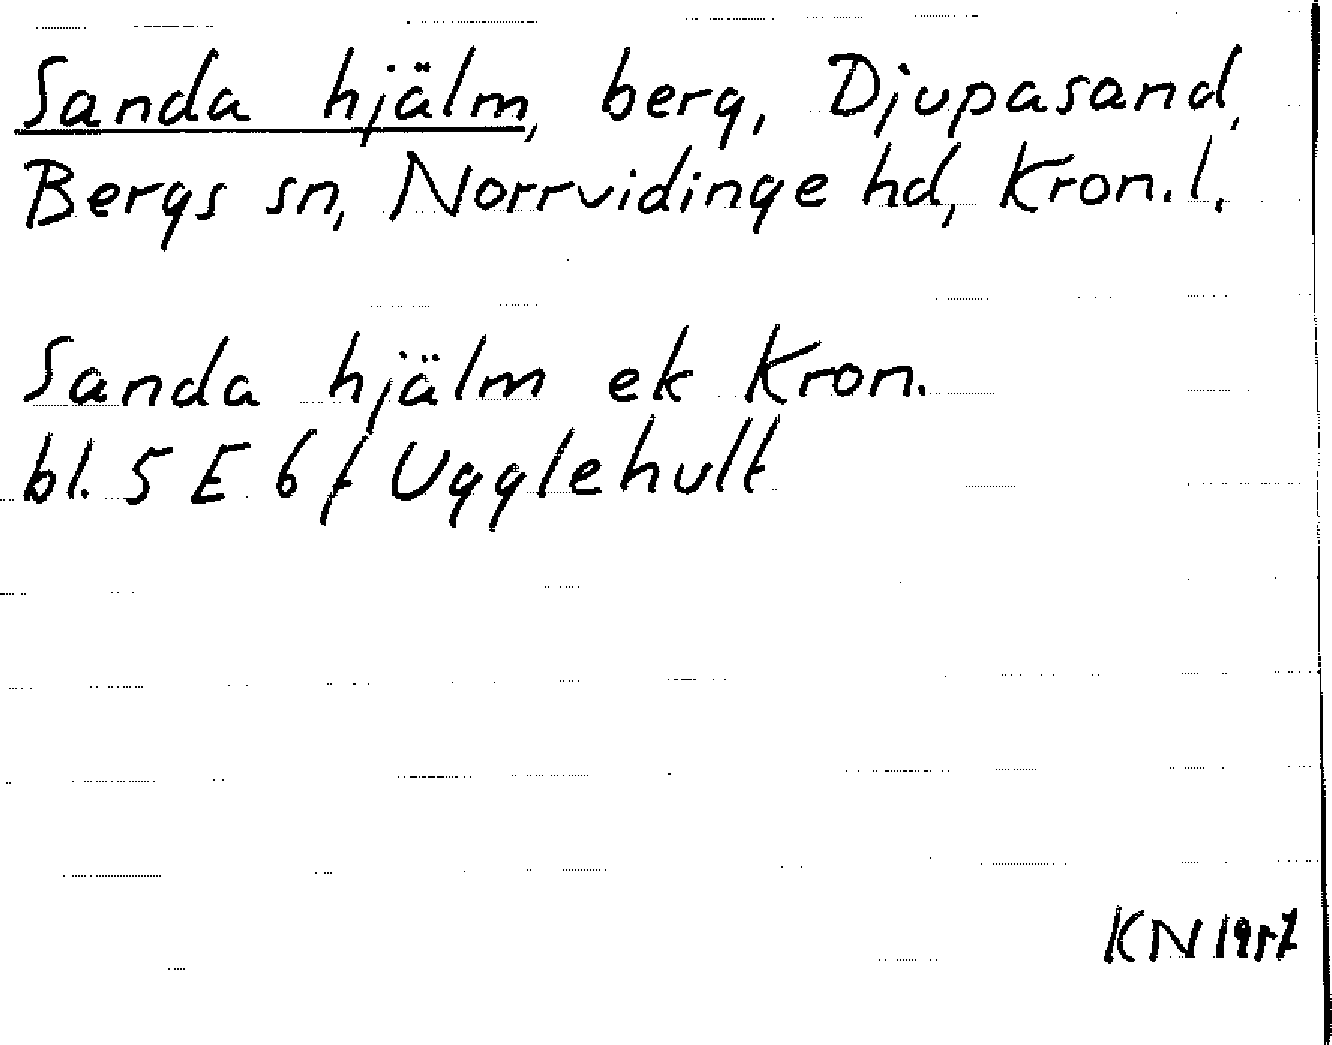 Sanda hjälm, berg, Djupasand,
Bergs sn, Norrvidinge hd, Kron.l.
Sanda hjälm ek Kron.
bl. 5 E 6 f Ugglehult
KN 1957